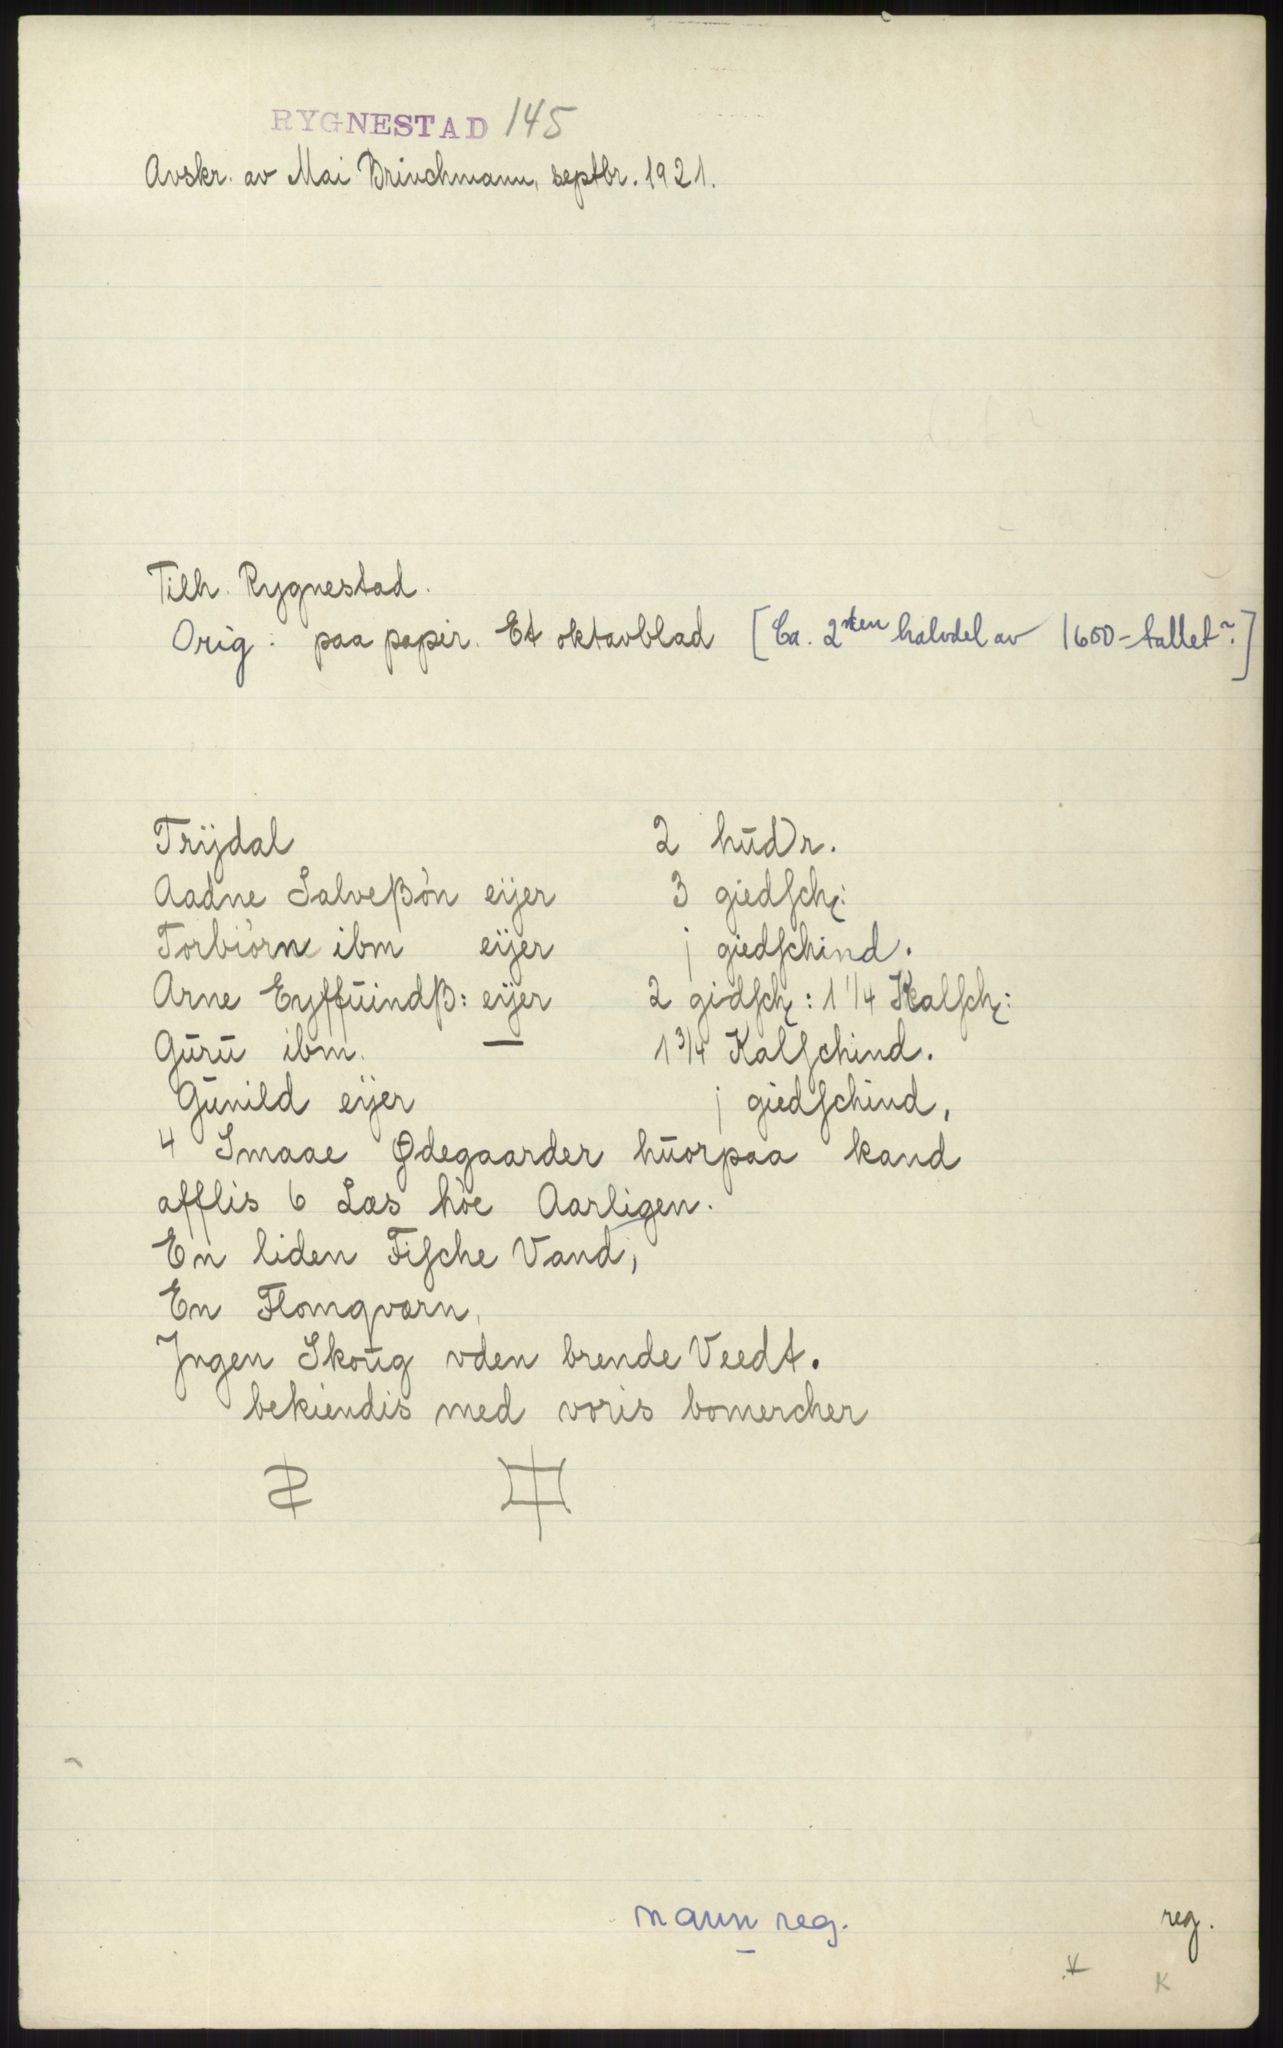 RYGNESTAD 145
Avskr. av Mai Brinchmann, septbr. 1921.
Tilh. Rygnestad.
Orig: paa papir. Et oktavblad [Ca. 2den halvdel av 1600-tallet?]
Trÿdal 2 hūdr.
Aadne Salveßøn eÿer 3 giedsch:
Torbiørn ibm eÿer j giedschind.
Arne Eyffūindß: eÿer 2 gidsch: 1 1/4 Kalsch:
Gūrū ibm. — 1 3/4 Kalschind.
Gūnild eÿer j giedschind,
4 Smaae Ødegaarder hūorpaa kand
afflis 6 Læs høe Aarligen.
En liden Fische Vand,
En Flomqværn,
Jngen Skoūg vden brende Veedt.
bekiendis med voris bomercher
navn reg.
reg.
K